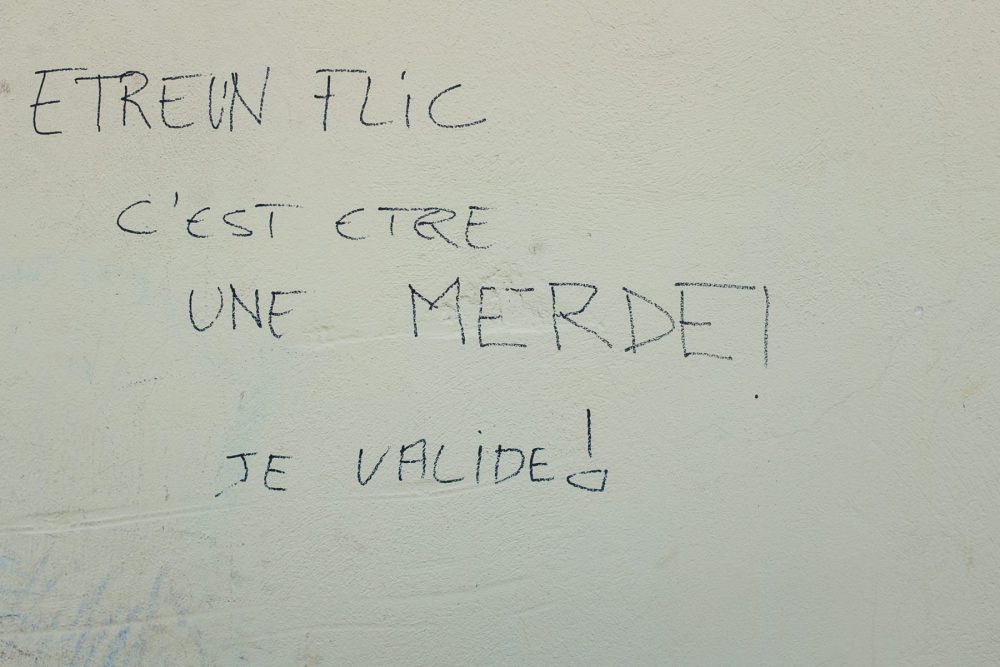 ETRE UN FLIC
C'EST ETRE
UNE MERDE!
JE VALIDE!